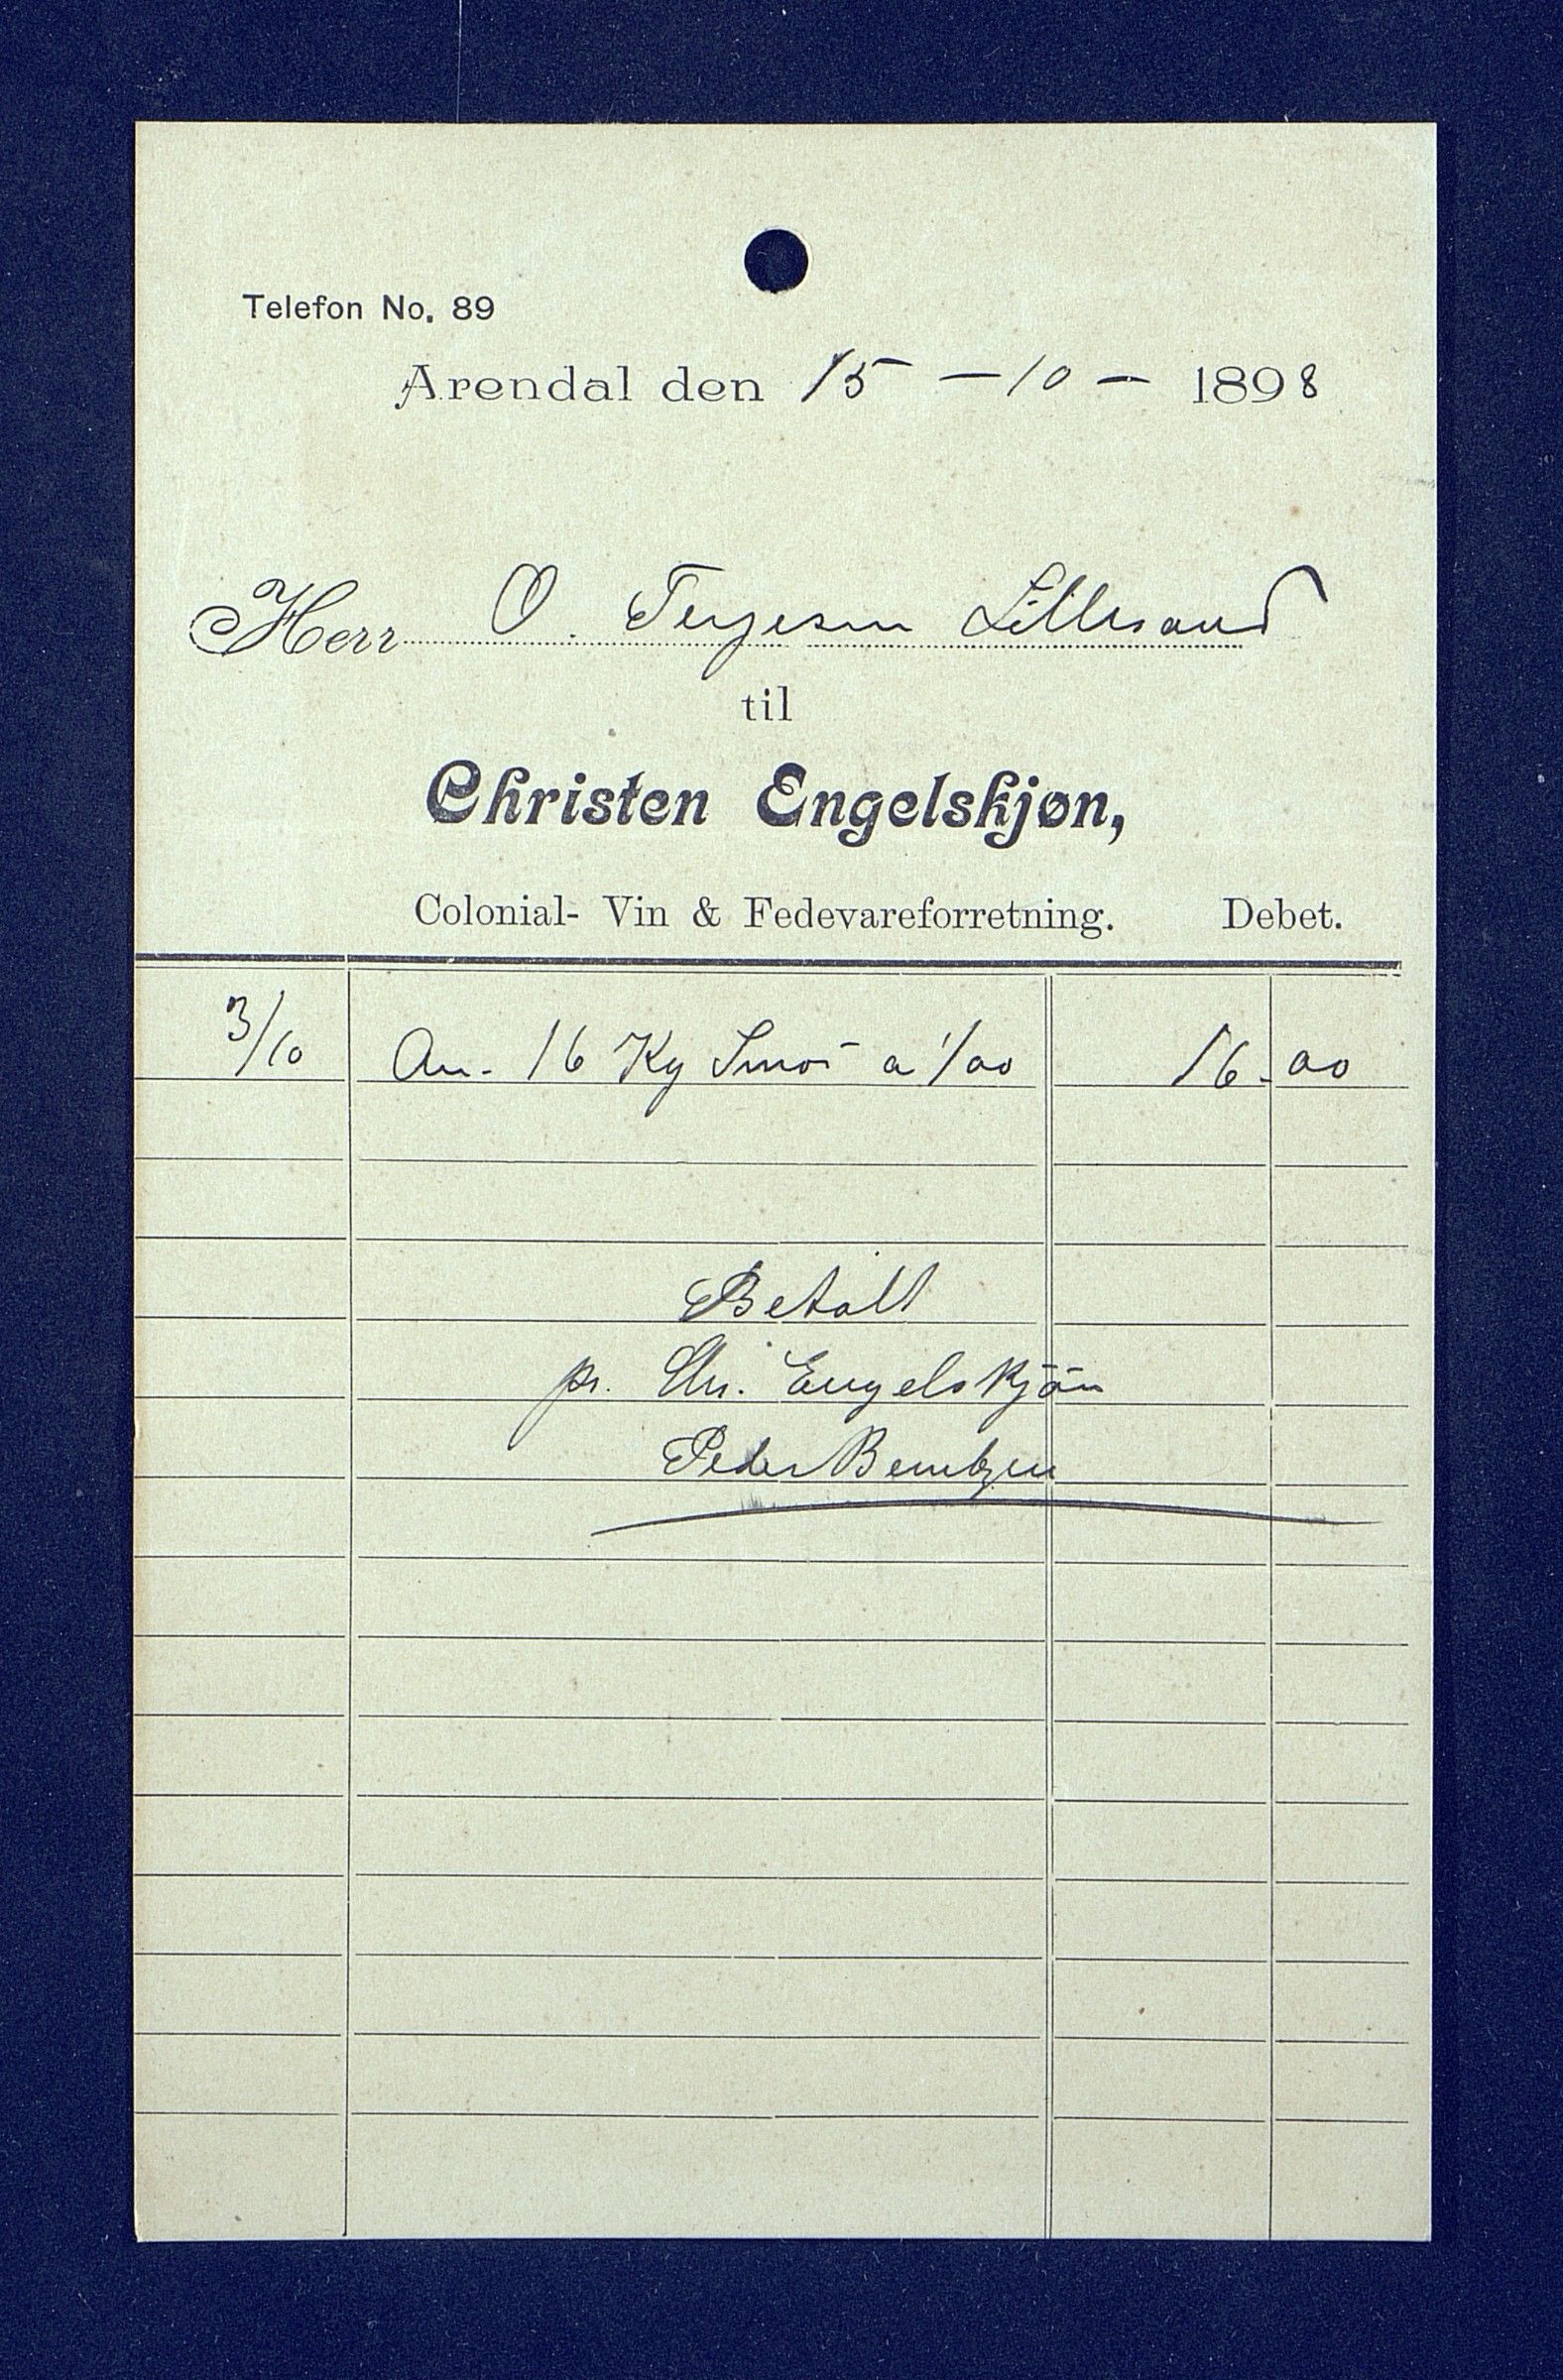 Telefon No. 89
Arendal den 15 - 10 - 1898
Herr O. Terjesen Lillesand
til
Christen Engelskjøn,
Colonial- Vin & Fedevareforretning. Debet.
3/10 An. 16 Kg Smör a 1/00 16.00
Betalt
pr. Chr. Engelskjön
Peder Berntzen